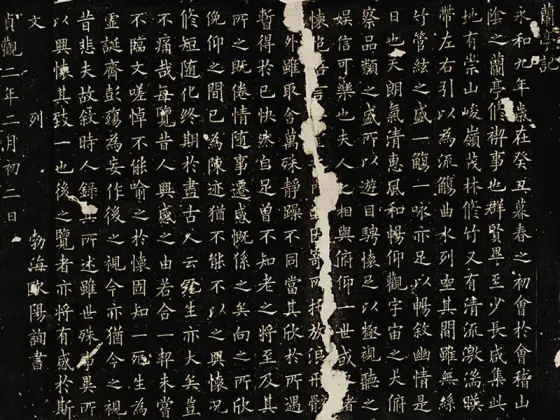 蘭亭記
永和九年歲在癸丑暮春之初會於會稽山
陰之蘭亭脩禊事也群賢畢至少長咸集此
地有崇山峻嶺茂林脩竹又有清流激湍暎
帶左右引以為流觴曲水列坐其間雖無絲
竹管絃之盛一觴一詠亦足以暢敘幽情是
日也天朗氣清惠風和暢仰觀宇宙之大俯
察品類之盛所以遊目騁懷足以極視聽之
娛信可樂也夫人相與俯仰一世或諸
懷言內或因寄所託放浪形骸
外雖取舍萬殊靜躁不同當其欣於所遇
暫得於己快然自足曾不知老之將至及其
所之既倦情隨事遷感慨係之矣向之所欣
俛仰之間已為陳迹猶不能不以之興懷況
脩短隨化終期於盡古人云死生亦大矣豈
不痛哉每覽昔人興感之由若合一契未嘗
不臨文嗟悼不能喻之於懷固知一死生為
虛誕齊彭殤為妄作後之視今亦猶今之視
昔悲夫故敘時人錄所述雖世殊事異所
以興懷其致一也後之覽者亦將有感於斯
文 列
勃海歐陽詢書
貞觀二年二月初二日